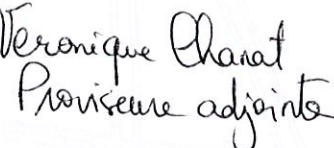 Veronique Chanat
Proviseure adjointe